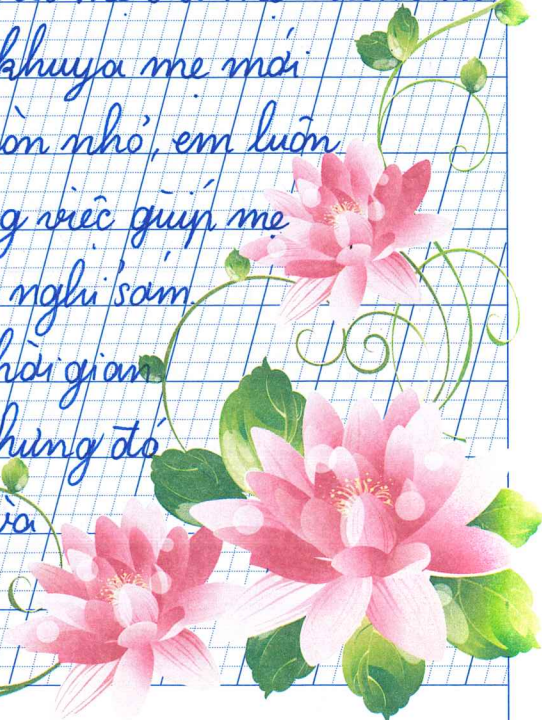 khuya mẹ mới
òn nhỏ, em luôn
g việc giúp mẹ
nghỉ sớm.
hời gian
hưng đó
và